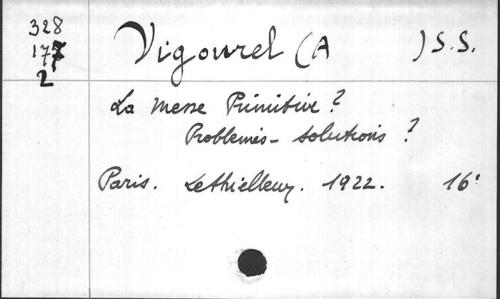 328
177
2
Vigourel (A ) S.S.
La Messe Primitive ?
Problèmes - Solutions ?
Paris. Lethielleux. 1922. 16°